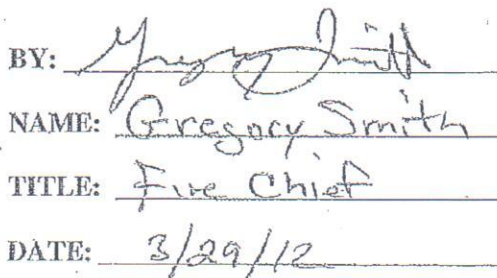 BY: Gregory Smith
NAME: Gregory Smith
TITLE: Fire Chief
DATE: 3/29/12